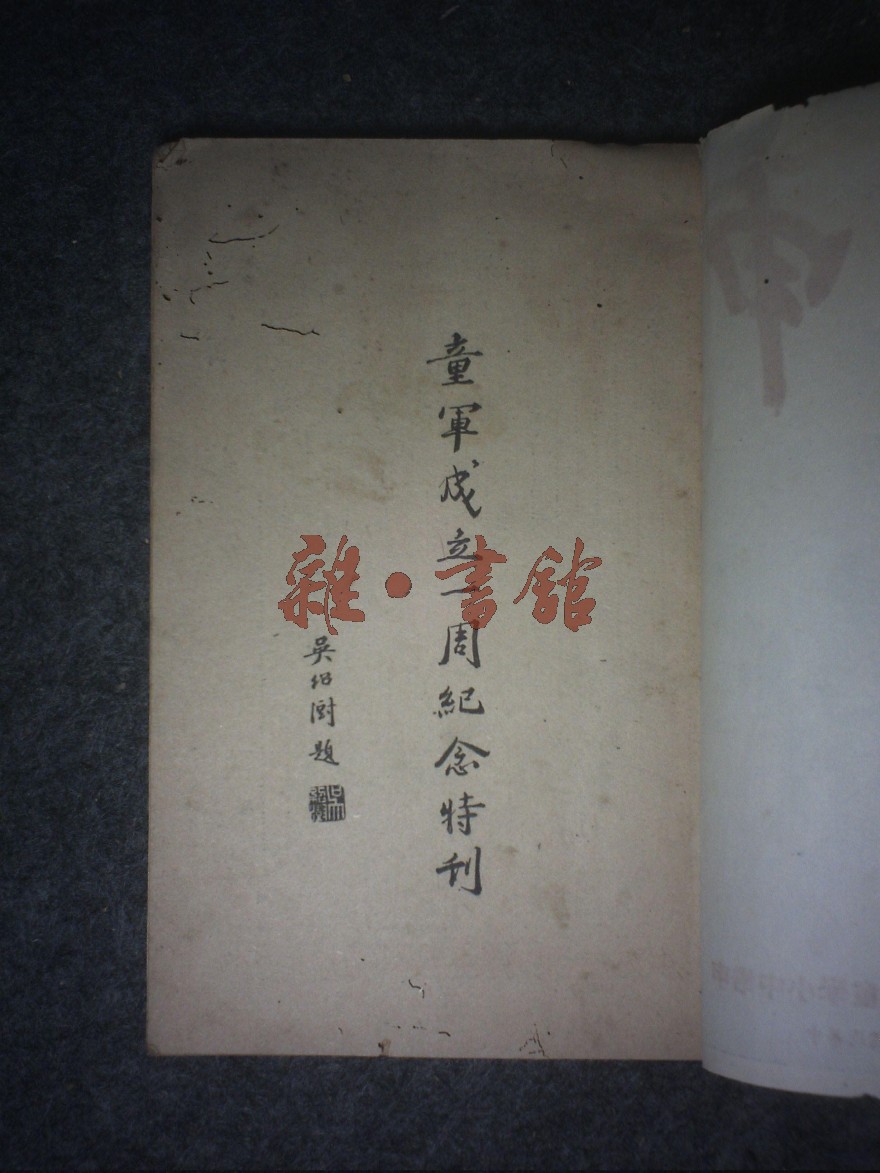 童軍成立一周紀念特刊
吳紹澍題
雜·書館